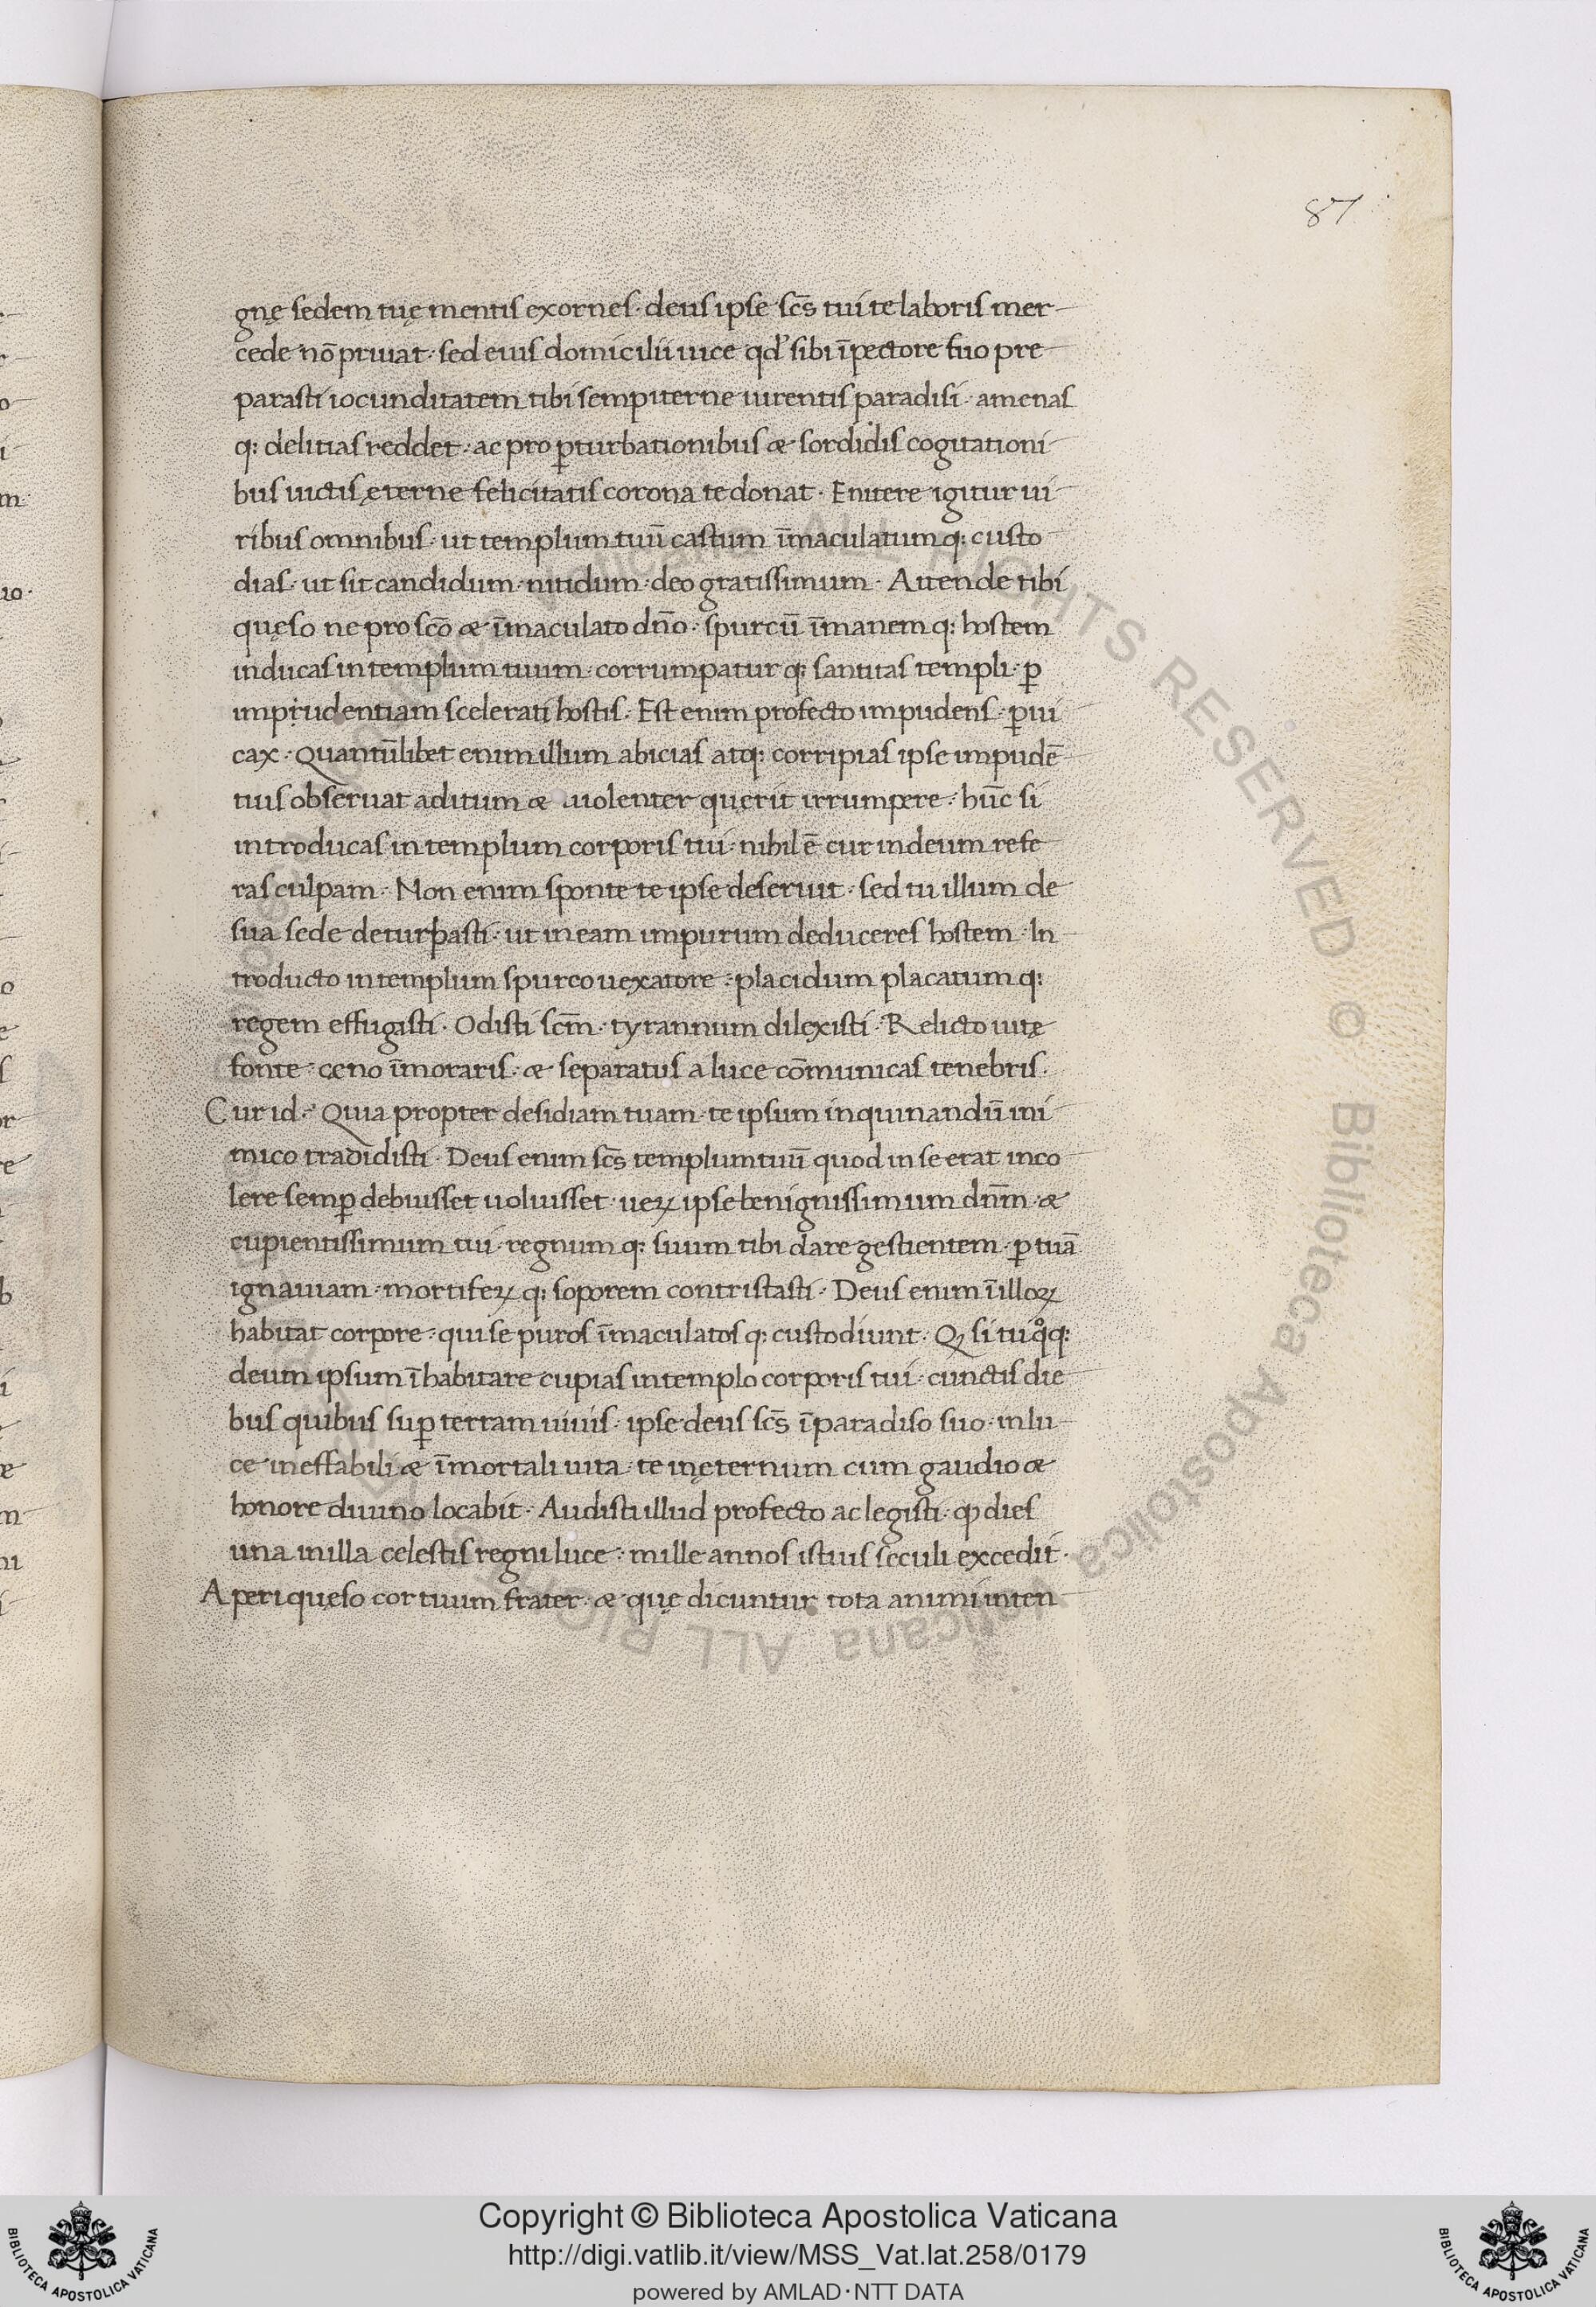 87
gnę sedem tuę mentis exornes · deus ipse scs̄ tui te laboris mer-
cede nō priuat · sed eius domicilii uice qd' sibi ī pectore tuo pre-
parasti iocunditatem tibi sempiterne uirentis paradisi · amenas
q: delitias reddet · ac pro ꝑturbationibus æ sordidis cogitationi-
bus uictis ęterne felicitatis corona te donat · Enitere igitur ui-
ribus omnibus · ut templum tuū castum īmaculatum q: custo-
dias · ut sit candidum · nitidum · deo gratissimum · Attende tibi
quęso ne pro scō æ īmaculato dn̄o · spurcū īmanem q: hostem
inducas in templum tuum · corrumpatur q: santitas templi · ꝑ
imprudentiam scelerati hostis · Est enim profecto impudens · ꝑui-
cax · Quantūlibet enim illum abicias atq: corripias ipse impudē-
tius obseruat aditum æ uiolenter querit irrumpere · hūc si
introducas in templum corporis tui · nihil ē cur in deum refe-
ras culpam · Non enim sponte te ipse deseruit · sed tu illum de
sua sede deturbasti · ut in eam impurum deduceres hostem · In-
troducto in templum spurco uexatore · placidum placatum q:
regem effugisti · Odisti scm̄ · tyrannum dilexisti · Relicto uitę
fonte · ceno īmoraris · æ separatus a luce cōmunicas tenebris ·
Cur id · Quia propter desidiam tuam · te ipsum inquinandū ini-
mico tradidisti · Deus enim scs̄ templum tuū quod in se erat inco-
lere semꝑ debuisset uoluisset · ueꝝ ipse benignissimum dnm̄ · æ
cupientissimum tui · regnum q: suum tibi dare gestientem · ꝑ tuā
ignauiam · mortifeꝝ q: soporem contristasti · Deus enim ī illoꝝ
habitat corpore · qui se puros īmaculatos q: custodiunt · Qꝫ si tu qͦq:
deum ipsum īhabitare cupias in templo corporis tui · cunctis die-
bus quibus suꝑ terram uiuis · ipse deus scs̄ ī paradiso suo · in lu-
ce ineffabili æ īmortali uita · te in ęternum cum gaudio æ
honore diuino locabit · Audisti illud profecto ac legisti · ꝙ dies
una in illa celestis regni luce · mille annos istius seculi excedit ·
Aperi quęso cor tuum frater · æ quę dicuntur tota animi inten-
Copyright © Biblioteca Apostolica Vaticana
http://digi.vatlib.it/view/MSS_Vat.lat.258/0179
powered by AMLAD·NTT DATA